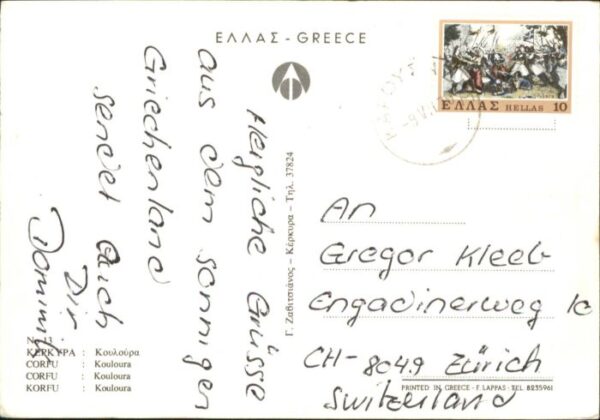 ΕΛΛΑΣ - GREECE
ΕΛΛΑΣ HELLAS 10
Herzliche Grüsse
aus dem sonnigen
Griechenland
sendet auch
Dir
Dominik
Γ. Ζαβιτσιάνος – Κέρκυρα – Τηλ. 37824
An
Gregor Kleeb
Engadinerweg 1c
CH-8049 Zürich
Switzerland
N. 13
ΚΕΡΚΥΡΑ : Κουλούρα
CORFU : Kouloura
CORFU : Kouloura
KORFU : Kouloura
PRINTED IN GREECE - F. LAPPAS - TEL. 8235961